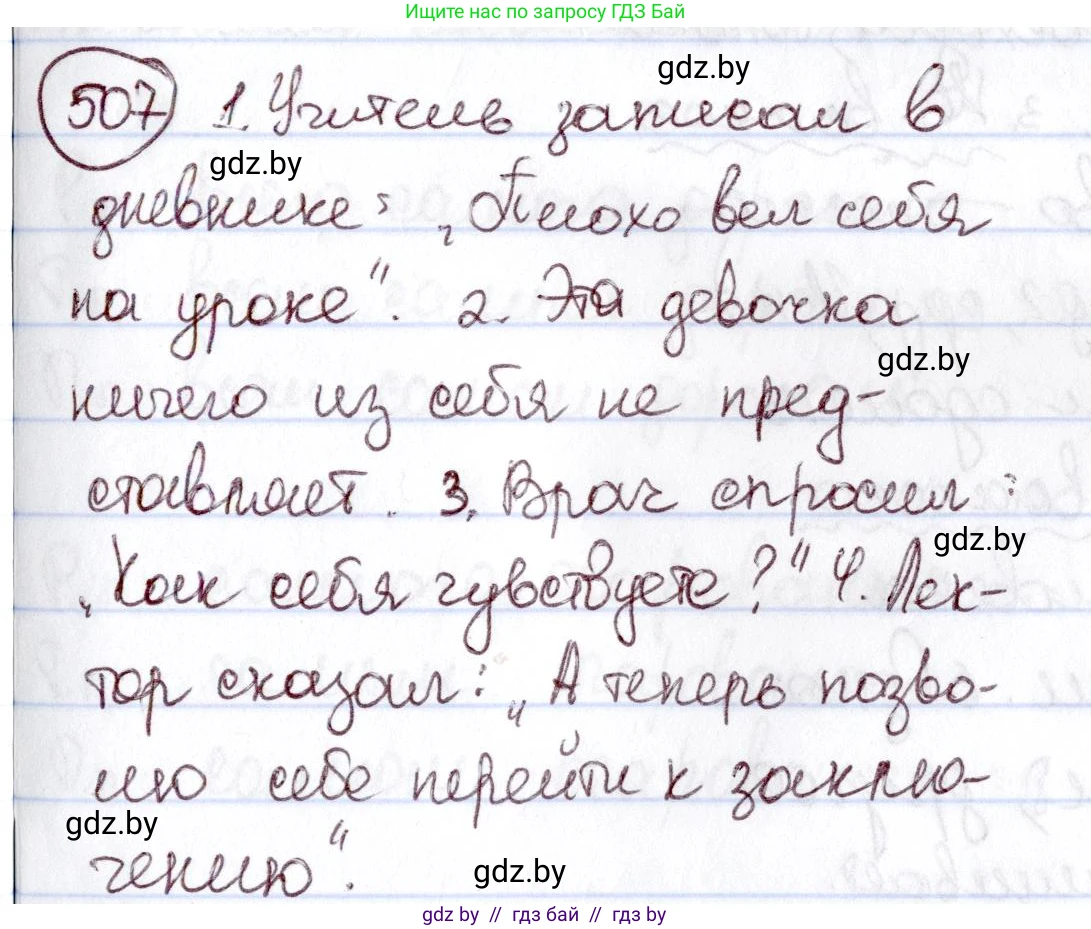 Ищите нас по запросу ГДЗ Бай
gdz.by
507 1. Учитель записал в
gdz.by
дневнике: „Плохо вел себя
на уроке“. 2. Эта девочка
gdz.by
ничего из себя не пред-
ставляет. 3. Врач спросил:
gdz.by
„Как себя чувствуете?“ 4. Лек-
тор сказал: „А теперь позво-
лю себе перейти к заклю-
gdz.by
чению“.
gdz.by
gdz by // гдз бай // гдз by